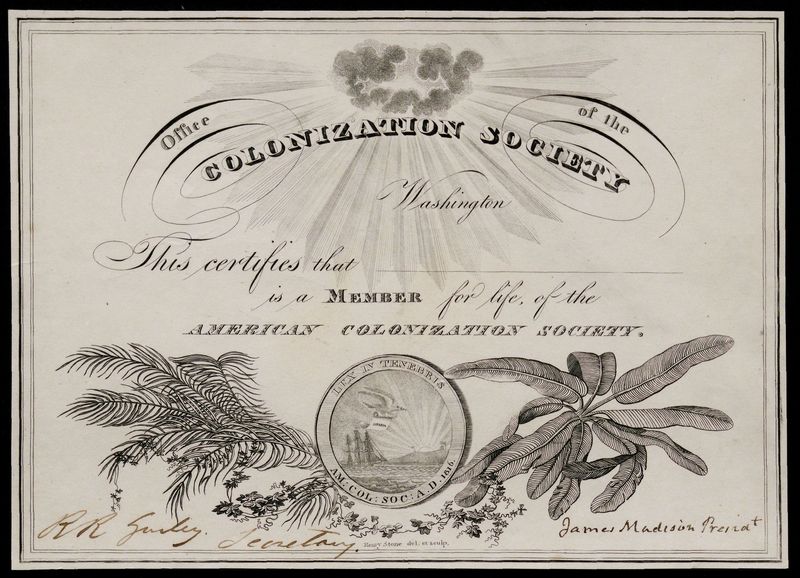 Office of the
COLONIZATION SOCIETY
Washington
This certifies that
is a MEMBER for life, of the
AMERICAN COLONIZATION SOCIETY.
LUX IN TENEBRIS
AM. COL: SOC: A.D. 1816.
R R Gurley. Secretary.
James Madison Presidt
Henry Stone del. et sculp.